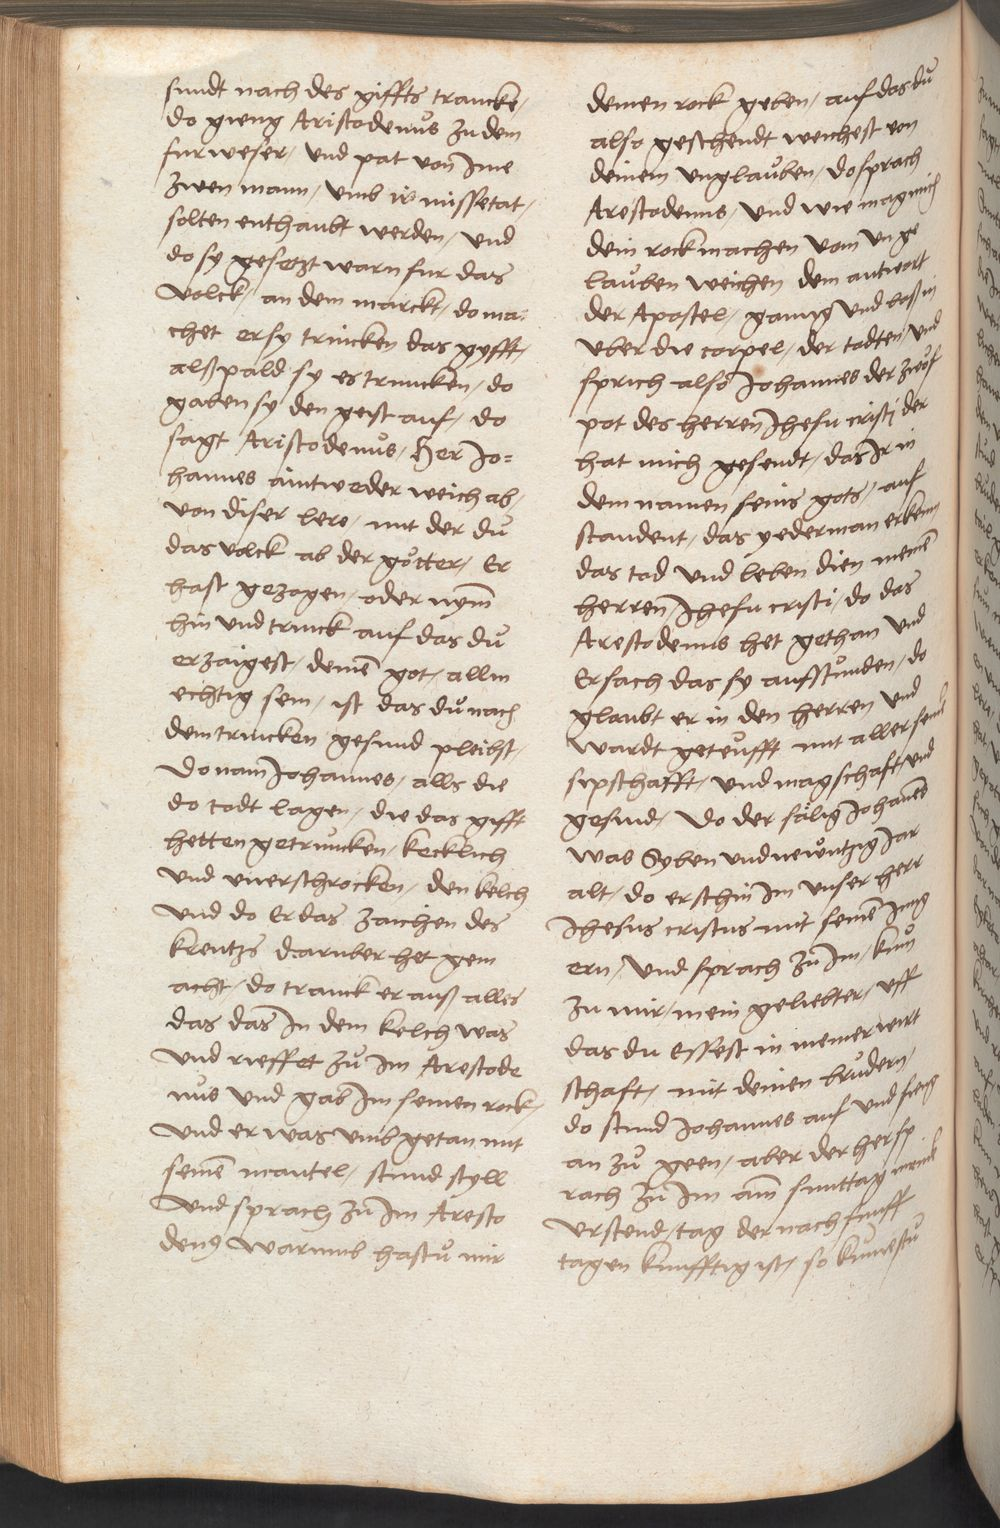 sundt nach des giffts trancke /
do gieng Aristodemůs zu dem
furweser / vnd pat von Ime
zwen mann / vmb ir missetat /
solten enthaubt werden / vnd
do sy gesetzt warn fur das
volck / an dem marckt / do ma=
chet er sy trincken das gyfft /
alßpald sy es truncken / do
gaben sy den geist auf / do
sagt Aristodemůs / Her Jo=
hannes aintweder weich ab /
von diser lere / mit der dů
das volck ab der götter / Er
hast gezogen / oder nym̄
hin vnd trinck auf das dů
erzaigest / deinē got / allm
echtig sein / ist das dů nach
dem trincken gesund pleibst /
Do nam Johannes / alls die
do todt lagen / die das gifft
hetten getruncken / kecklich
vnd vnerschrocken / den kelch
vnd do Er das zaichen des
kreutzs daruber het gem
acht / do tranck er auß alles
das das In dem kelch was
vnd riefft zů im Arestode
nůs vnd gab Im seinen rock /
vnd er was vmbgetan mit
seinē mantel / stund styll
vnd sprach zů Im Aresto
den9 warumb hastů mir
deinen rock geben / auf das dů
also geschendt weichest von
deinem vnglauben / do sprach
Arestodemus / vnd wie mag mich
dein rock machen vom vn ge
lauben weichen dem antwort
der Apostel / ganng vnd
vber die corpel / der todten / vnd
sprich also Johannes der zwölf
pot des herren Jhesu cristi der
hat mich gesendt / das Ir in
dem namen seins gots / auf
standent / das yederman erkenn
das tod vnd leben dien meinē
herren / Jhesu cristi / do das
Arestodemus het gethan vnd
Er sach das sy aufstunden / do
glaubt er in den herren vnd
wardt geteufft mit aller seint
sipschafft / vnd magschaft / vnd
gesind / Do der sälig Johannes
was Syben vnd newntzig Jar
alt / do erschin Im vnser herr
Jhesus cristus mit seinē Jung
ern / vnd sprach zů Im / kum
zu mir / mein geliebter / vff
das du Essest in meiner wirt
schaft / mit deinen brudern /
do stund Johannes auf vnd fieng
an zů geen / aber der her sp
rach zů Im am suntag meind
vrstend / tag der nach funff
tagen kunfftig ist / so kumestů